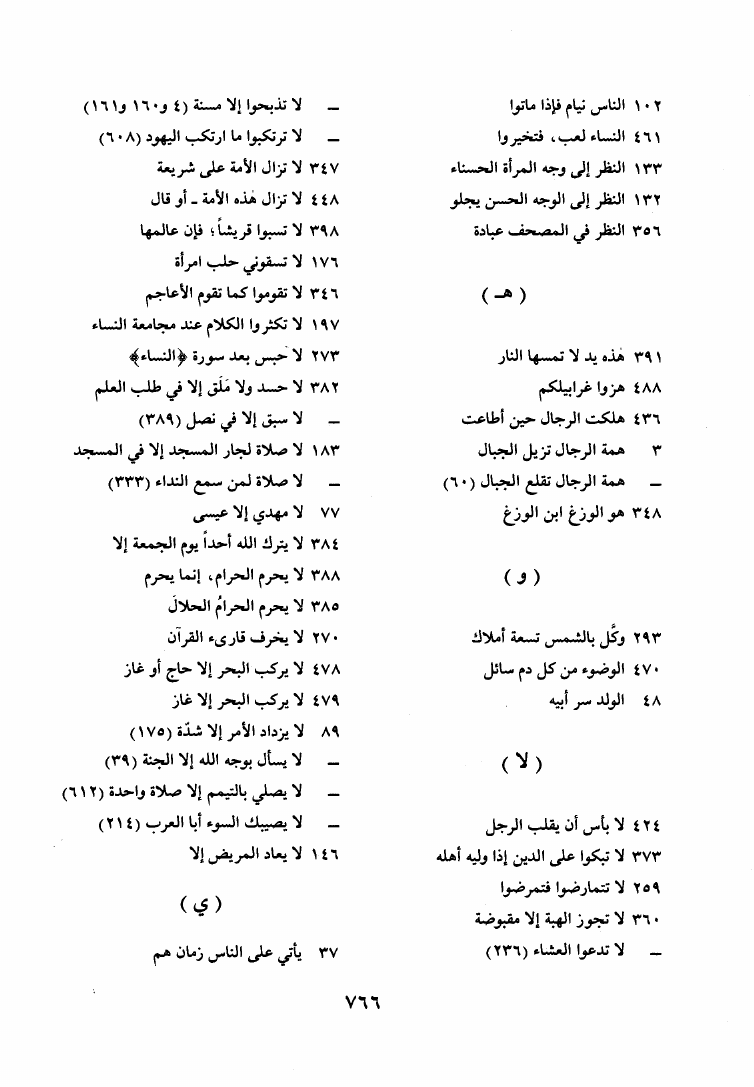 ١٠٢ الناس نيام فإذا ماتوا
٤٦١ النساء لعب، فتخيروا
١٣٣ النظر إلى وجه المرأة الحسناء
١٣٢ النظر إلى الوجه الحسن يجلو
٣٥٦ النظر في المصحف عبادة
(هـ)
٣٩١ هٰذه يد لا تمسها النار
٤٨٨ هزوا غرابيلكم
٤٣٦ هلكت الرجال حين أطاعت
٣ همة الرجال تزيل الجبال
ــ همة الرجال تقلع الجبال (٦٠)
٣٤٨ هو الوزغ ابن الوزغ
(و)
٢٩٣ وكَّل بالشمس تسعة أملاك
٤٧٠ الوضوء من كل دم سائل
٤٨ الولد سر أبيه
(لا)
٤٢٤ لا بأس أن يقلب الرجل
٣٧٣ لا تبكوا على الدين إذا وليه أهله
٢٥٩ لا تتمارضوا فتمرضوا
٣٦٠ لا تجوز الهبة إلا مقبوضة
ــ لا تدعوا العشاء (٢٣٦)
ــ لا تذبحوا إلا مسنة (٤ و١٦٠ و١٦١)
ــ لا ترتكبوا ما ارتكب اليهود (٦٠٨)
٣٤٧ لا تزال الأمة على شريعة
٤٤٨ لا تزال هٰذه الأمة - أو قال
٣٩٨ لا تسبوا قريشاً؛ فإن عالمها
١٧٦ لا تسقوني حلب امرأة
٣٤٦ لا تقوموا كما تقوم الأعاجم
١٩٧ لا تكثروا الكلام عند مجامعة النساء
٢٧٣ لا حبس بعد سورة ﴿النساء﴾
٣٨٢ لا حسد ولا مَلَق إلا في طلب العلم
ــ لا سبق إلا في نصل (٣٨٩)
١٨٣ لا صلاة لجار المسجد إلا في المسجد
ــ لا صلاة لمن سمع النداء (٣٣٣)
٧٧ لا مهدي إلا عيسى
٣٨٤ لا يترك الله أحداً يوم الجمعة إلا
٣٨٨ لا يحرم الحرام، إنما يحرم
٣٨٥ لا يحرم الحرامُ الحلالَ
٢٧٠ لا يخرف قارىء القرآن
٤٧٨ لا يركب البحر إلا حاج أو غاز
٤٧٩ لا يركب البحر إلا غاز
٨٩ لا يزداد الأمر إلا شدّة (١٧٥)
ــ لا يسأل بوجه الله إلا الجنة (٣٩)
ــ لا يصلي بالتيمم إلا صلاة واحدة (٦١٢)
ــ لا يصيبك السوء أبا العرب (٢١٤)
١٤٦ لا يعاد المريض إلا
(ي)
٣٧ يأتي على الناس زمان هم
٧٦٦